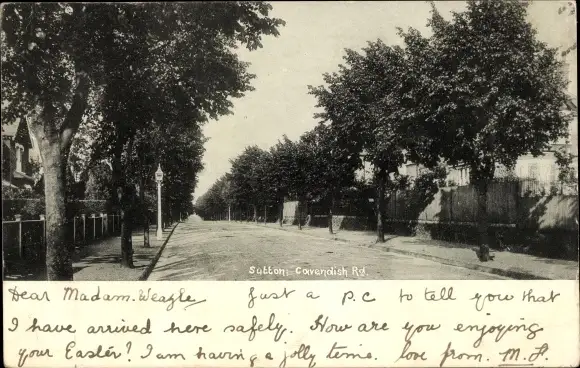 Sutton: Cavendish Rd.
Dear Madam. Weagle Just a p.c to tell you that
I have arrived here safely. How are you enjoying
your Easter? I am having a jolly time. love from. M. F.